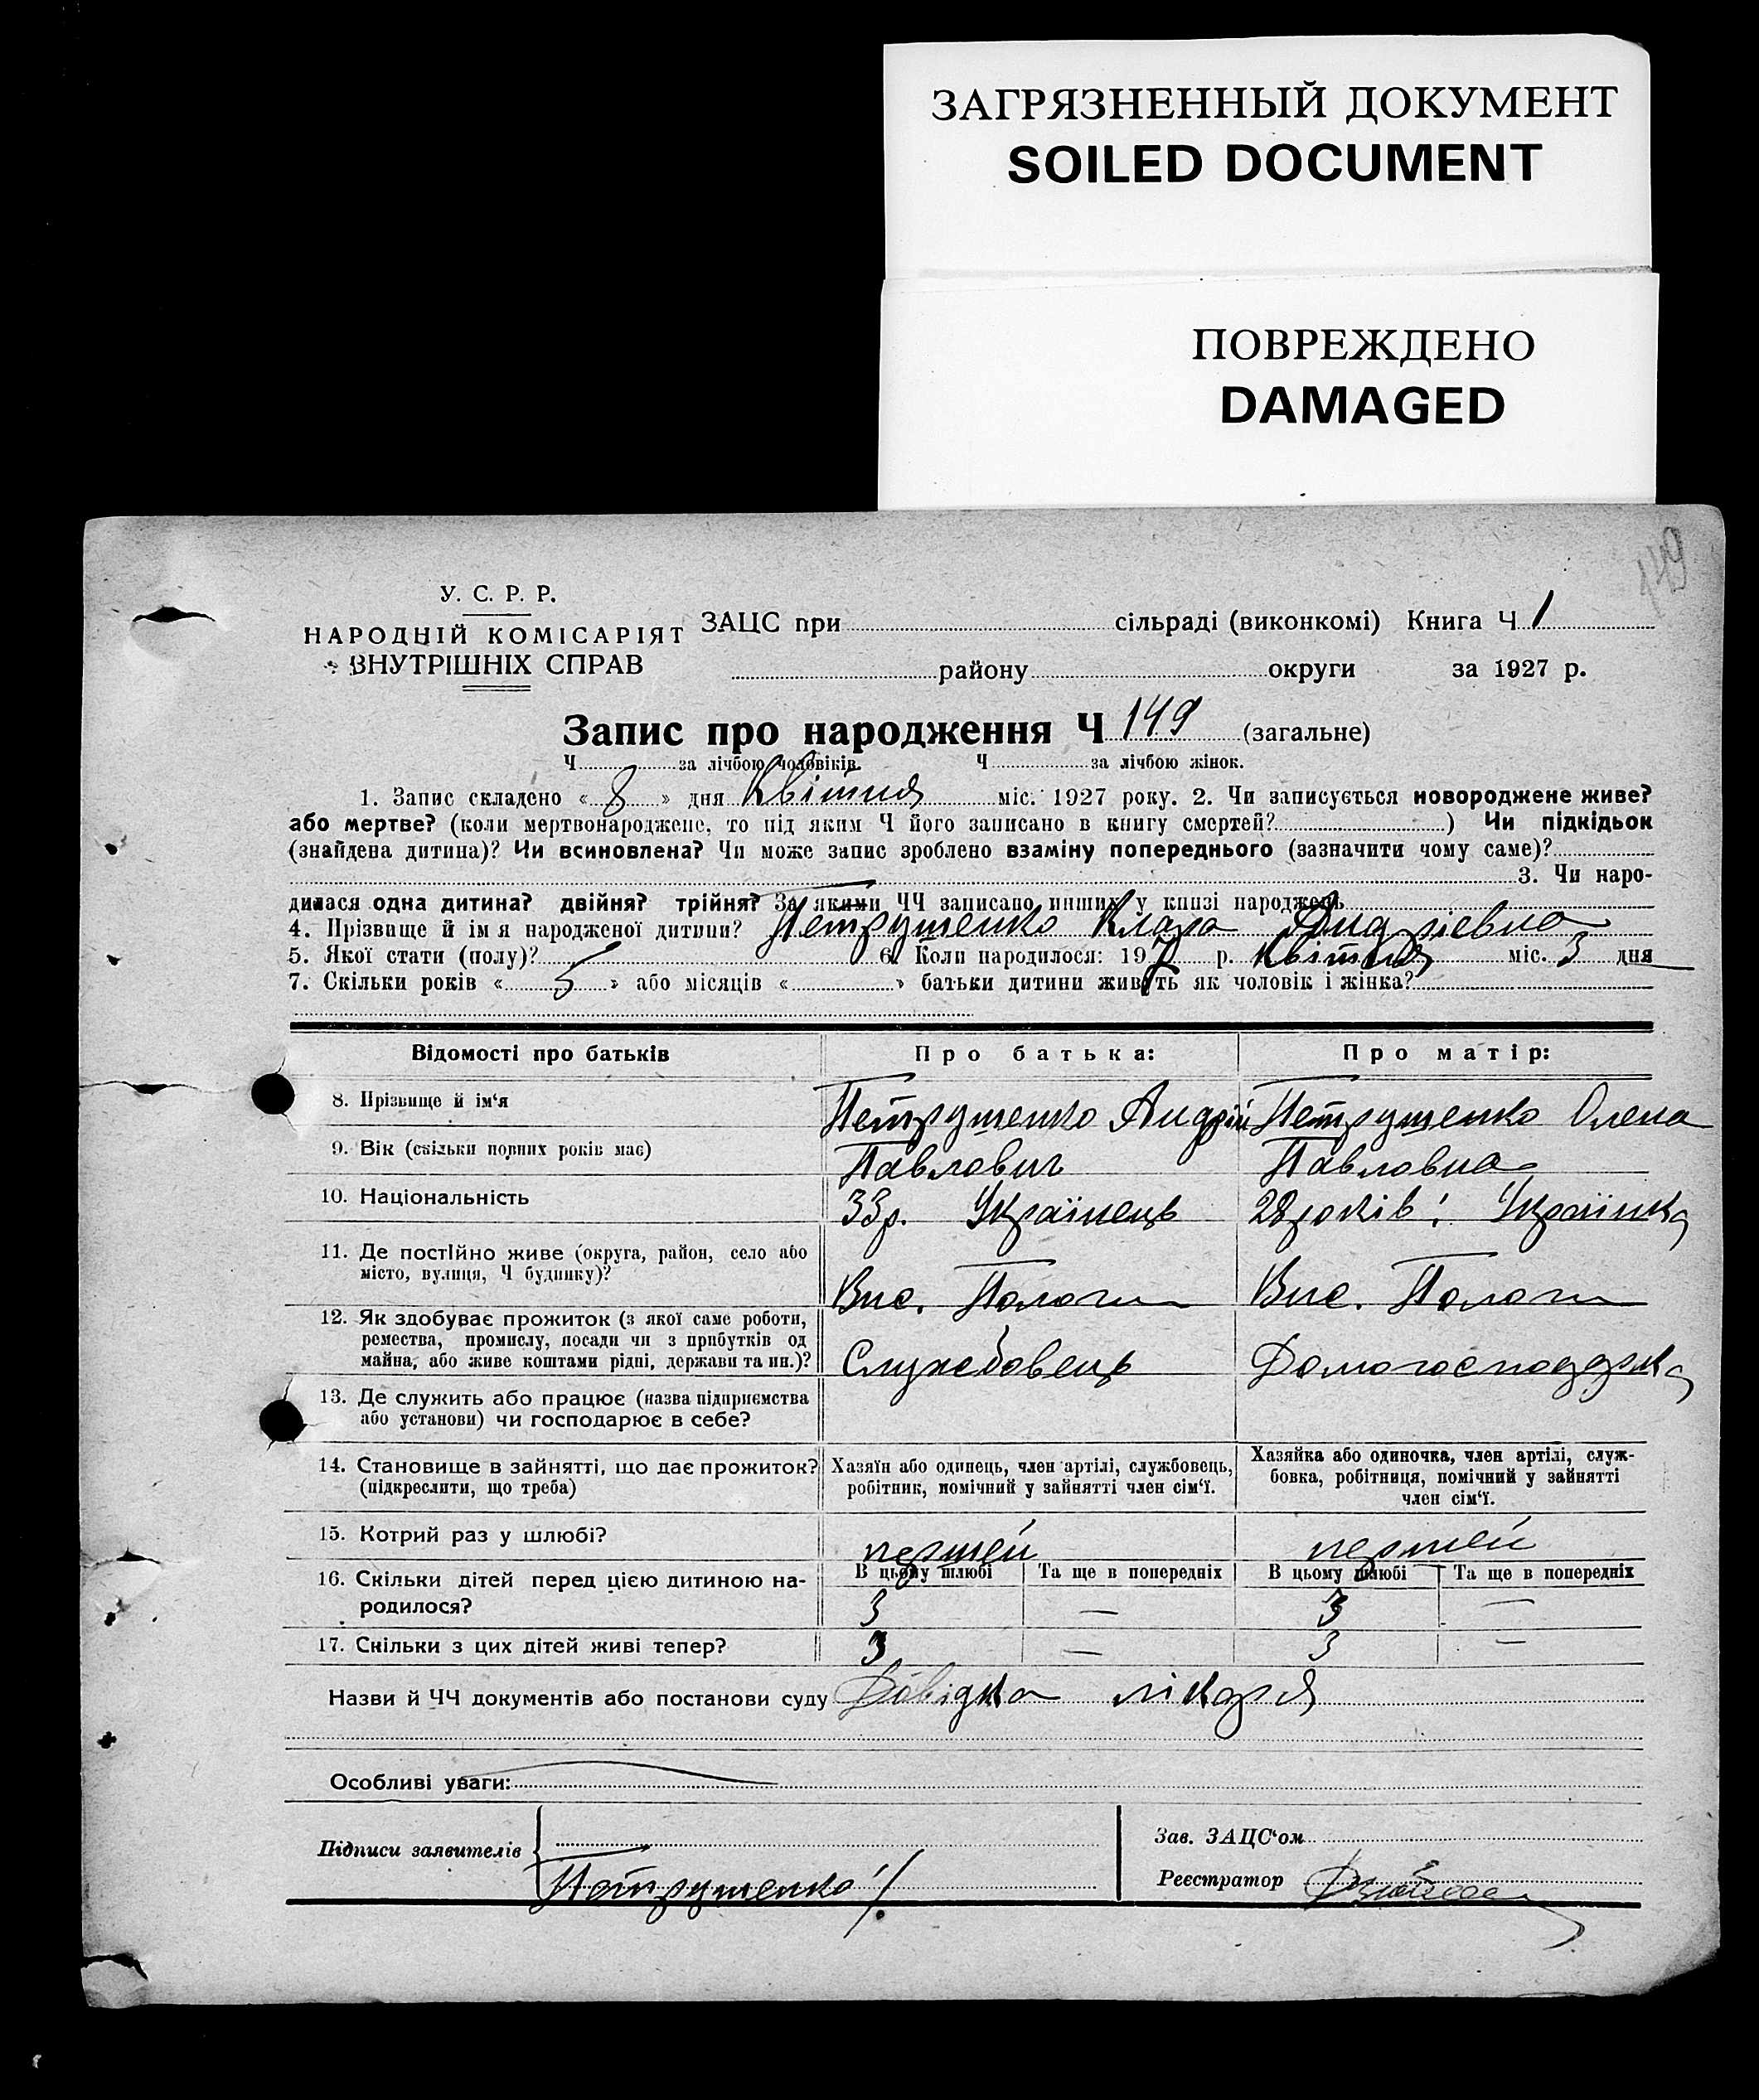 ЗАГРЯЗНЕННЫЙ ДОКУМЕНТ
SOILED DOCUMENT
ПОВРЕЖДЕНО
DAMAGED
149
У. С. Р. Р.
НАРОДНІЙ КОМІСАРІЯТ
ВНУТРІШНІХ СПРАВ
ЗАЦС при сільраді (виконкомі) Книга Ч 1
району округи за 1927 р.
Запис про народження Ч 149 (загальне)
Ч за лічбою чоловіків. Ч за лічбою жінок.
1. Запис складено « 8 » дня Квітня міс. 1927 року. 2. Чи записується новороджене живе?
або мертве? (коли мертвонароджене, то під яким Ч його записано в книгу смертей? ) Чи підкідьок
(знайдена дитина)? Чи всиновлена? Чи може запис зроблено взаміну попереднього (зазначити чому саме)?
3. Чи наро-
дилася одна дитина? двійня? трійня? За якими ЧЧ записано инших у книзі народжень
4. Прізвище й ім я народженої дитини? Петрушенко Клара Андріевна
5. Якої стати (полу)? 6. Коли народилося: 197 р. Квітня міс. 3 дня
7. Скільки років « 5 » або місяців « » батьки дитини живуть як чоловік і жінка?
Відомості про батьків Про батька: Про матір:
8. Прізвище й ім‘я Петрушенко Андрій Петрушенко Олена
9. Вік (скільки повних років має) Павлович Павловна
10. Національність 33р. Українець 28 років! Українка
11. Де постійно живе (округа, район, село або
місто, вулиця, Ч будинку)? Вис. Пологи Вис. Пологи
12. Як здобуває прожиток (з якої саме роботи,
ремества, промислу, посади чи з прибутків од
майна, або живе коштами рідні, держави та ин.)? Службовець Домогосподарка
13. Де служить або працює (назва підприємства
або установи) чи господарює в себе?
14. Становище в зайнятті, що дає прожиток?
(підкреслити, що треба)
Хазяїн або одинець, член артілі, службовець,
робітник, помічний у зайнятті член сім‘ї.
Хазяйка або одиночка, член артілі, служ-
бовка, робітниця, помічний у зайнятті
член сім‘ї.
15. Котрий раз у шлюбі? першей першей
В цьому шлюбі Та ще в попередніх В цьому шлюбі Та ще в попередніх
16. Скільки дітей перед цією дитиною на-
родилося? 3 — 3 —
17. Скільки з цих дітей живі тепер? 3 — 3 —
Назви й ЧЧ документів або постанови суду Довідка лікаря
Особливі уваги:
Підписи заявителів
Петрушенко
Зав. ЗАЦС‘ом
Реєстратор